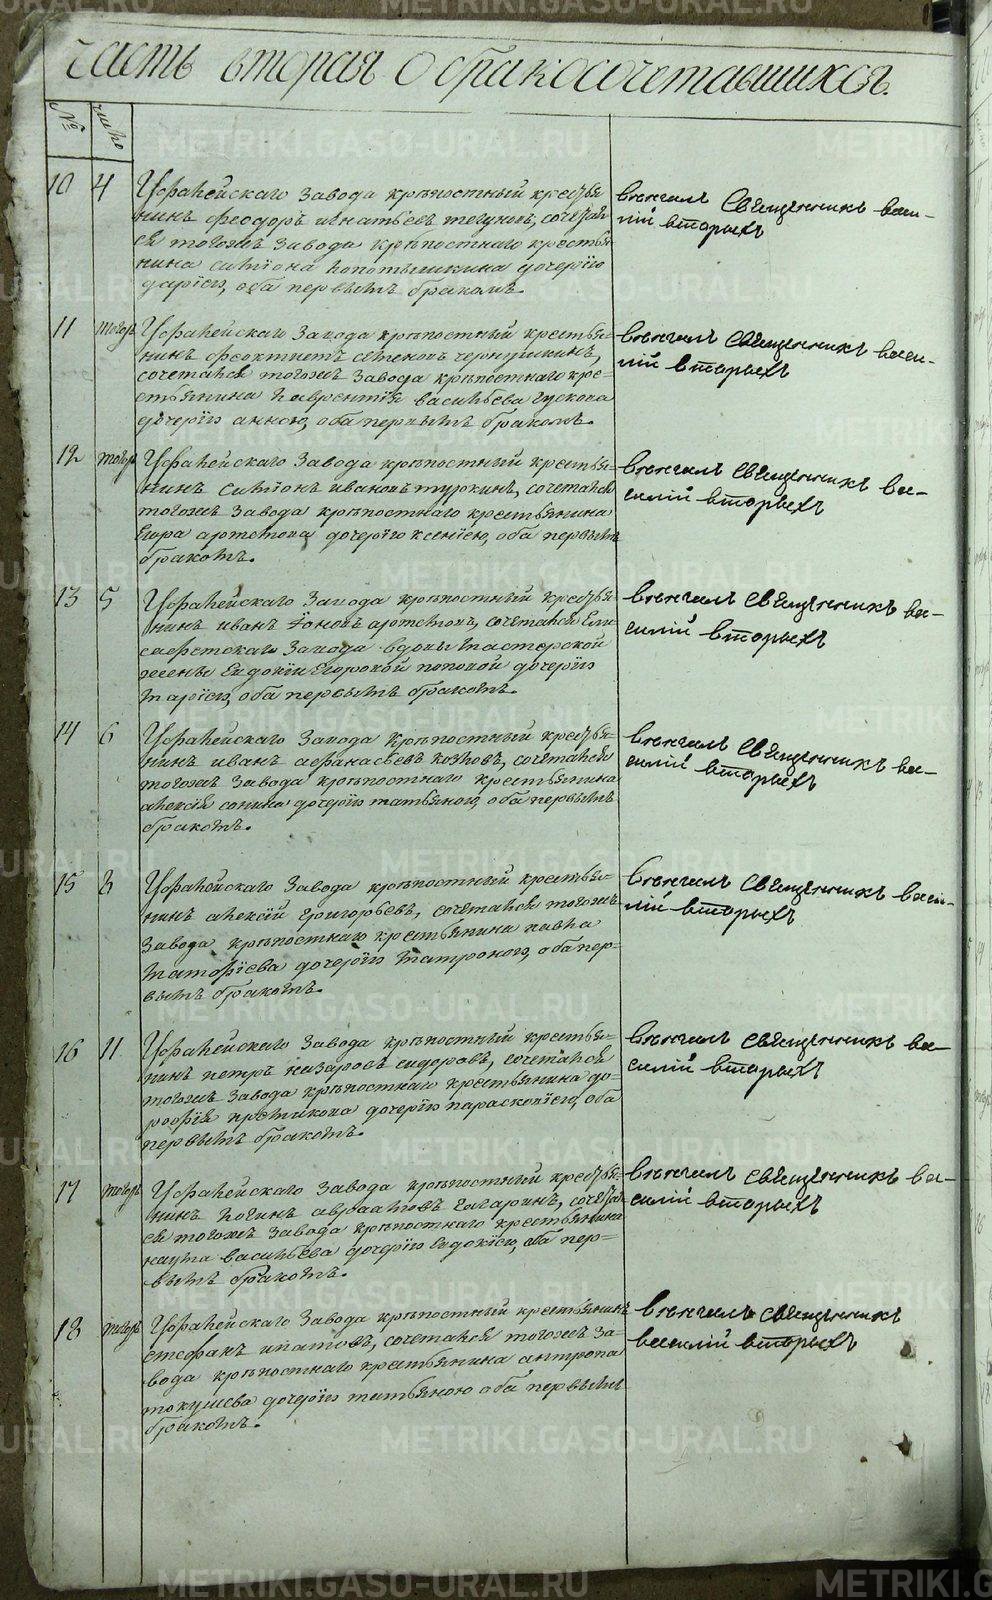 часть вторая о бракосочетавшихся.
№ число
10 4 Уфалейскаго Завода крѣпостный крестья
нинъ феодоръ игнатьевъ сочетал
ся тогожъ Завода крѣпостнаго крестья
нина симеона дочерію
даріею, оба первымъ бракомъ.
вѣнчалъ Священникъ васи-
лій вторыхъ
11 тогожъ Уфалейскаго Завода крѣпостный крестья-
нинъ феоктистъ семеновъ чернушкинъ,
сочетался тогожъ Завода крѣпостнаго кре-
стьянина лаврентія васильева гускова
дочерію анною, оба первымъ бракомъ.
вѣнчалъ Священникъ васи-
лій вторыхъ
12 тогожъ Уфалейскаго Завода крѣпостный крестья-
нинъ симеонъ ивановъ туркинъ, сочетался
тогожъ Завода крѣпостнаго крестьянина
Егора артемова дочерію ксеніею, оба первымъ
бракомъ.
вѣнчалъ Священникъ ва-
силій вторыхъ
13 5 Уфалейскаго Завода крѣпостный крестья
нинъ иванъ артемовъ, сочетался Ели
саветскаго Завода вдовы мастерской
жены Евдокіи Егоровой поповой дочерію
маріею, оба первымъ бракомъ.
вѣнчалъ Священникъ ва-
силій вторыхъ
14 6 Уфалейскаго Завода крѣпостный крестья-
нинъ иванъ афанасьевъ козловъ, сочетался
тогожъ Завода крѣпостнаго крестьянина
алексія сонина дочерію татьяною, оба первымъ
бракомъ.
вѣнчалъ Священникъ ва-
силій вторыхъ
15 8 Уфалейскаго Завода крѣпостный крестья-
нинъ алексій григорьевъ, сочетался тогожъ
Завода крѣпостнаго крестьянина павла
дочерію матроною, оба пер-
вымъ бракомъ.
вѣнчалъ Священникъ васи-
лій вторыхъ
16 11 Уфалейскаго Завода крѣпостный крестья-
нинъ петръ назаровъ сидоровъ, сочетался
тогожъ Завода крѣпостнаго крестьянина до-
рофія дочерію парасковіею, оба
первымъ бракомъ.
вѣнчалъ Священникъ ва-
силій вторыхъ
17 тогожъ Уфалейскаго Завода крѣпостный крестья-
нинъ логинъ авраамовъ гагаринъ, сочетал
ся тогожъ Завода крѣпостнаго крестьянина
наума васильева дочерію Евдокіею, оба пер-
вымъ бракомъ.
вѣнчалъ священникъ ва-
силій вторыхъ
18 тогожъ Уфалейскаго Завода крѣпостный крестьянинъ
стефанъ ипатовъ, сочетался тогожъ За-
вода крѣпостнаго крестьянина антропа
токушева дочерію татьяною оба первымъ
бракомъ.
вѣнчалъ священникъ
василій вторыхъ
METRIKI.GASO-URAL.RU